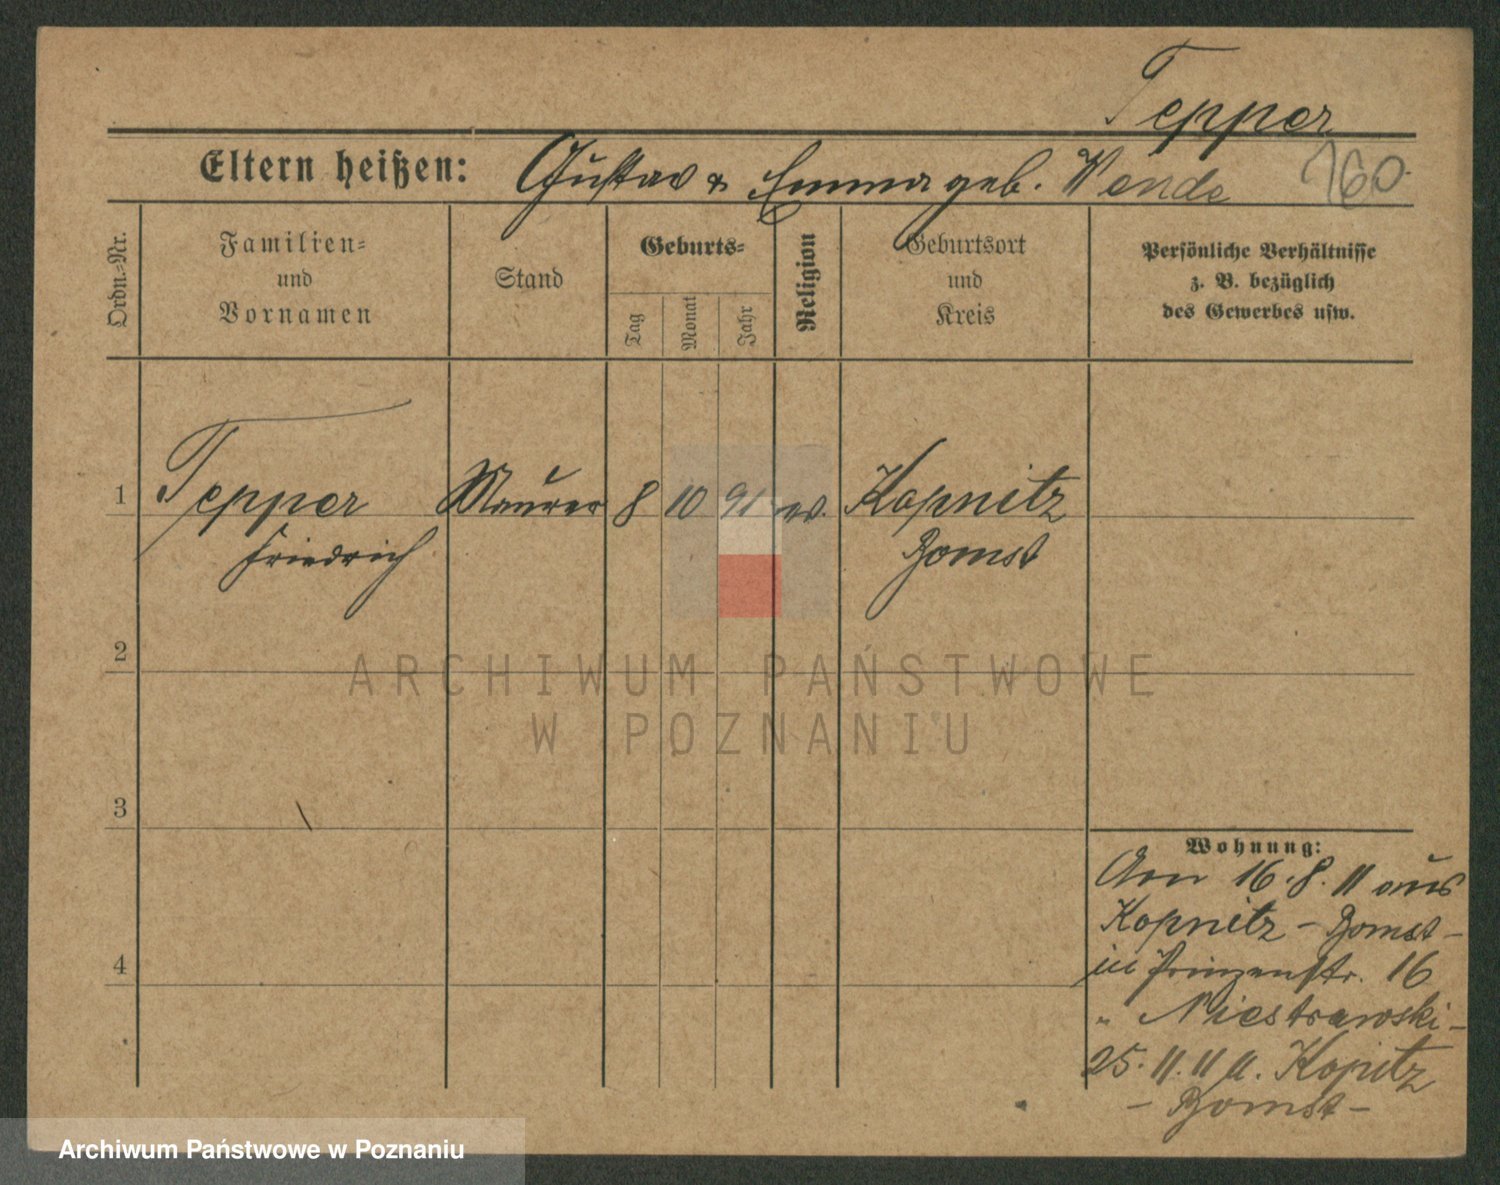 Tepper
Eltern heißen: Gustav & Emma geb. Wende 160
Ordn.-Nr.
Familien- und Vornamen
Stand
Geburts-
Tag
Monat
Jahr
Religion
Geburtsort und Kreis
Persönliche Verhältnisse
z. B. bezüglich
des Gewerbes usw.
1 Tepper Maurer 8 10 91 ev. Kopnitz
Friedrich Bomst
2
3
4
ARCHIWUM PAŃSTWOWE
W POZNANIU
Wohnung:
16.8.11 aus
Kopnitz – Bomst –
in Prinzenstr. 16
" Niestrawski –
25.11.11 a. Kopitz
– Bomst –
Archiwum Państwowe w Poznaniu